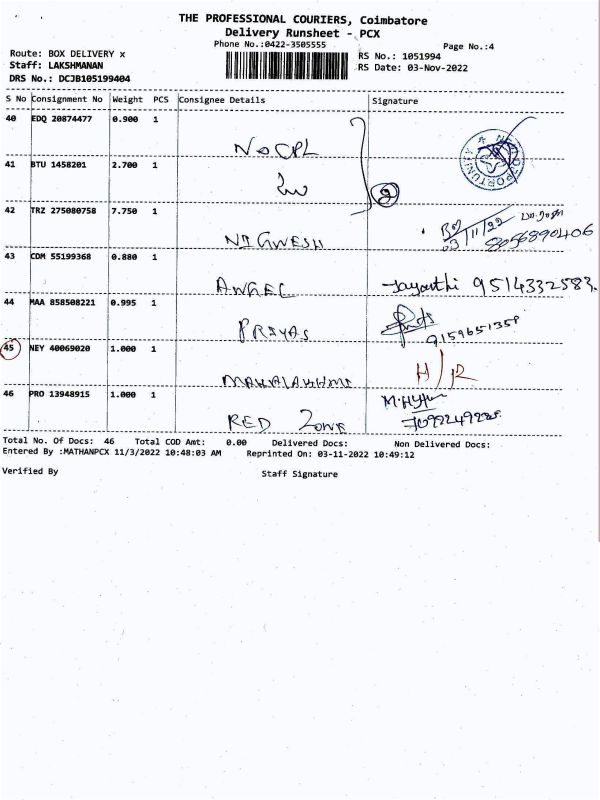 THE PROFESSIONAL COURIERS, Coimbatore
Delivery Runsheet - PCX
Phone No.:0422-3505555
Page No.:4
Route: BOX DELIVERY x
RS No.: 1051994
Staff: LAKSHMANAN
RS Date: 03-Nov-2022
DRS No.: DCJB105199404
S No Consignment No Weight PCS Consignee Details Signature
40 EDQ 20874477 0.900 1
NOCPL
41 BTU 1458201 2.700 1
2
42 TRZ 275080758 7.750 1
03/11/22
8056890406
NIGWESH
43 CDM 55199368 0.880 1
ANGEL Jayanthi 9514332583.
44 MAA 858508221 0.995 1
PRIYAS 9159651358
45 NEY 40069020 1.000 1
MAHALAKHMI H/R
46 PRO 13948915 1.000 1
RED ZONE
Total No. Of Docs: 46 Total COD Amt: 0.00 Delivered Docs: Non Delivered Docs:
Entered By :MATHANPCX 11/3/2022 10:48:03 AM Reprinted On: 03-11-2022 10:49:12
Verified By Staff Signature